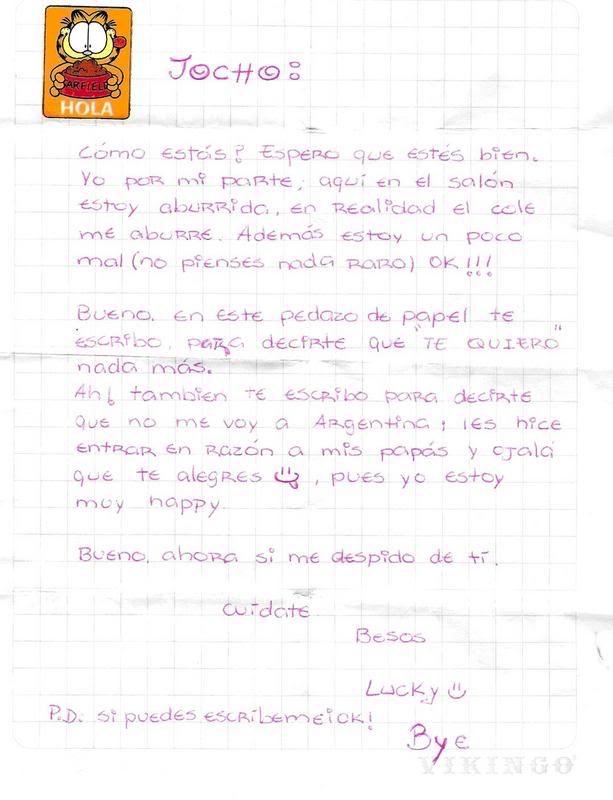 GARFIELD
HOLA
JOCHO:
Cómo estás? Espero que estés bien.
Yo por mi parte, aquí en el salón
estoy aburrida, en realidad el cole
me aburre. Además estoy un poco
mal (no pienses nada raro) OK!!!
Bueno, en este pedazo de papel te
escribo, para decirte que "TE QUIERO"
nada más.
Ah! tambien te escribo para decirte
que no me voy a Argentina; les hice
entrar en razón a mis papás y ojalá
que te alegres, pues yo estoy
muy happy.
Bueno, ahora si me despido de tí.
cuidate
Besos
Lucky
P.D. si puedes escríbemeick!
Bye
VIKINGO